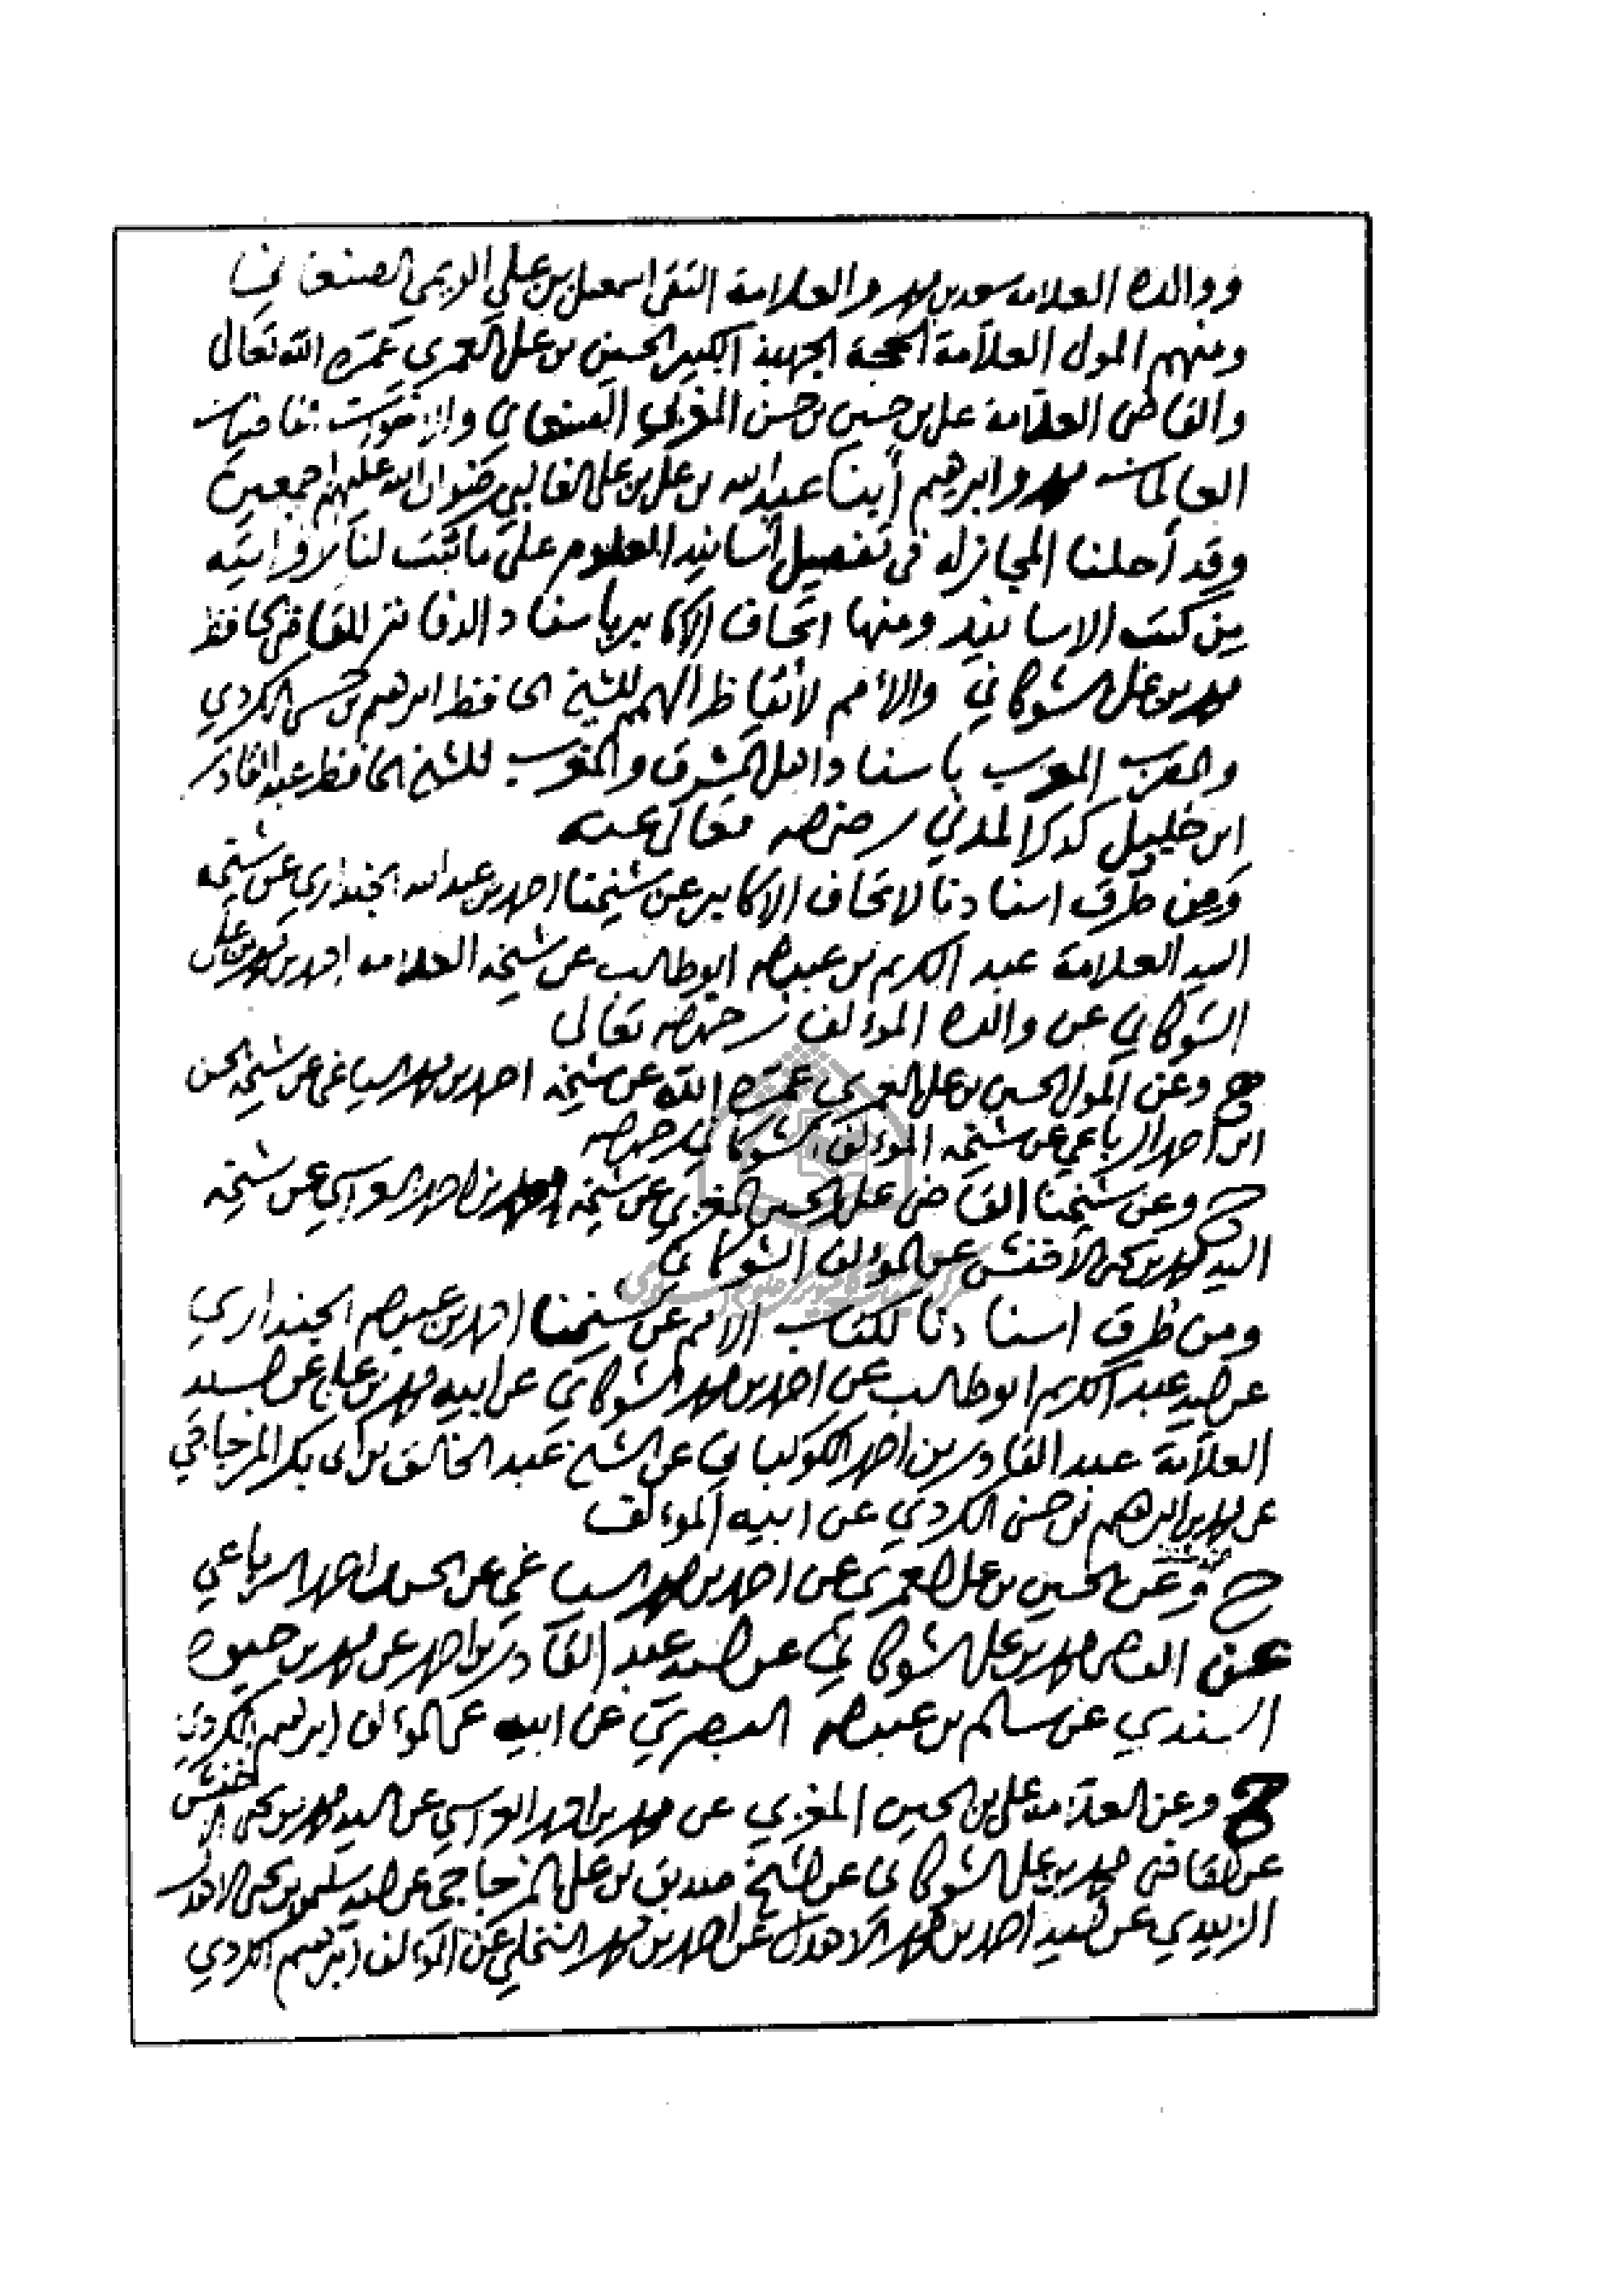 ووالده العلامة سعد بن محمد والعلامة التقي اسمعيل بن علي الريمي الصنعاني
ومنهم المولى العلامة الحجة الجهبذ الكبير الحسين بن علي العمري عمره الله تعالى
والقاضي العلامة علي بن حسين بن حسن المغربي الصنعاني والاخوان
العالمان محمد وابرهيم أبنا عبد الله بن علي بن علي الغالبي رضوان الله عليهم اجمعين
وقد أحلنا المجاز له في تفصيل أسانيد العلوم على ما ثبت لنا روايته
من كتب الاسانيد ومنها اتحاف الاكابر باسناد الدفاتر للقاضي الحافظ
محمد بن علي الشوكاني والأمم لأيقاظ الهمم للشيخ الحافظ ابرهيم بن حسن الكردي
والمعرب باسناد اهل المشرق والمغرب للشيخ الحافظ عبد القادر
ابن خليل كدك المدني رضي الله تعالى عنه
ومن طرق اسنادنا لاتحاف الاكابر عن شيخنا احمد بن عبد الله الجنداري عن شيخه
السيد العلامة عبد الكريم بن عبد الله ابو طالب عن شيخه العلامه احمد بن محمد بن علي
الشوكاني عن والده المؤلف رحمه الله تعالى
ح وعن المولى الحسين بن علي العمري عمره الله عن شيخه احمد بن محمد السياغي عن شيخه الحسن
ابن احمد الرباعي عن شيخه المؤلف الشوكاني رحمه الله
ح وعن شيخنا القاضي علي بن الحسين المغربي عن شيخه محمد بن احمد العراسي عن شيخه
السيد محمد بن يحيى الأخفش عن المؤلف الشوكاني
ومن طرق اسنادنا لكتاب الامم عن شيخنا احمد بن عبد الله الجنداري
عن السيد عبد الكريم ابو طالب عن احمد بن محمد الشوكاني عن ابيه محمد بن علي عن السيد
العلامة عبد القادر بن احمد الكوكباني عن الشيخ عبد الخالق بن ابي بكر المزجاجي
عن محمد بن ابرهيم بن حسن الكردي عن ابيه المؤلف
ح وعن الحسين بن علي العمري عن احمد بن محمد السياغي عن الحسن بن احمد الرباعي
عن القاضي محمد بن علي الشوكاني عن السيد عبد القادر بن احمد عن محمد بن حيوه
السندي عن سالم بن عبد الله البصري عن ابيه عن المؤلف ابرهيم الكردي
ح وعن العلامة علي بن الحسين المغربي عن محمد بن احمد العراسي عن السيد محمد بن يحيى الاخفش
عن القاضي محمد بن علي الشوكاني عن الشيخ صديق بن علي المزجاجي عن السيد سليمن بن يحيى الاهدل
الزبيدي عن السيد احمد بن محمد الاهدل عن احمد بن محمد النخلي عن المؤلف ابرهيم الكردي